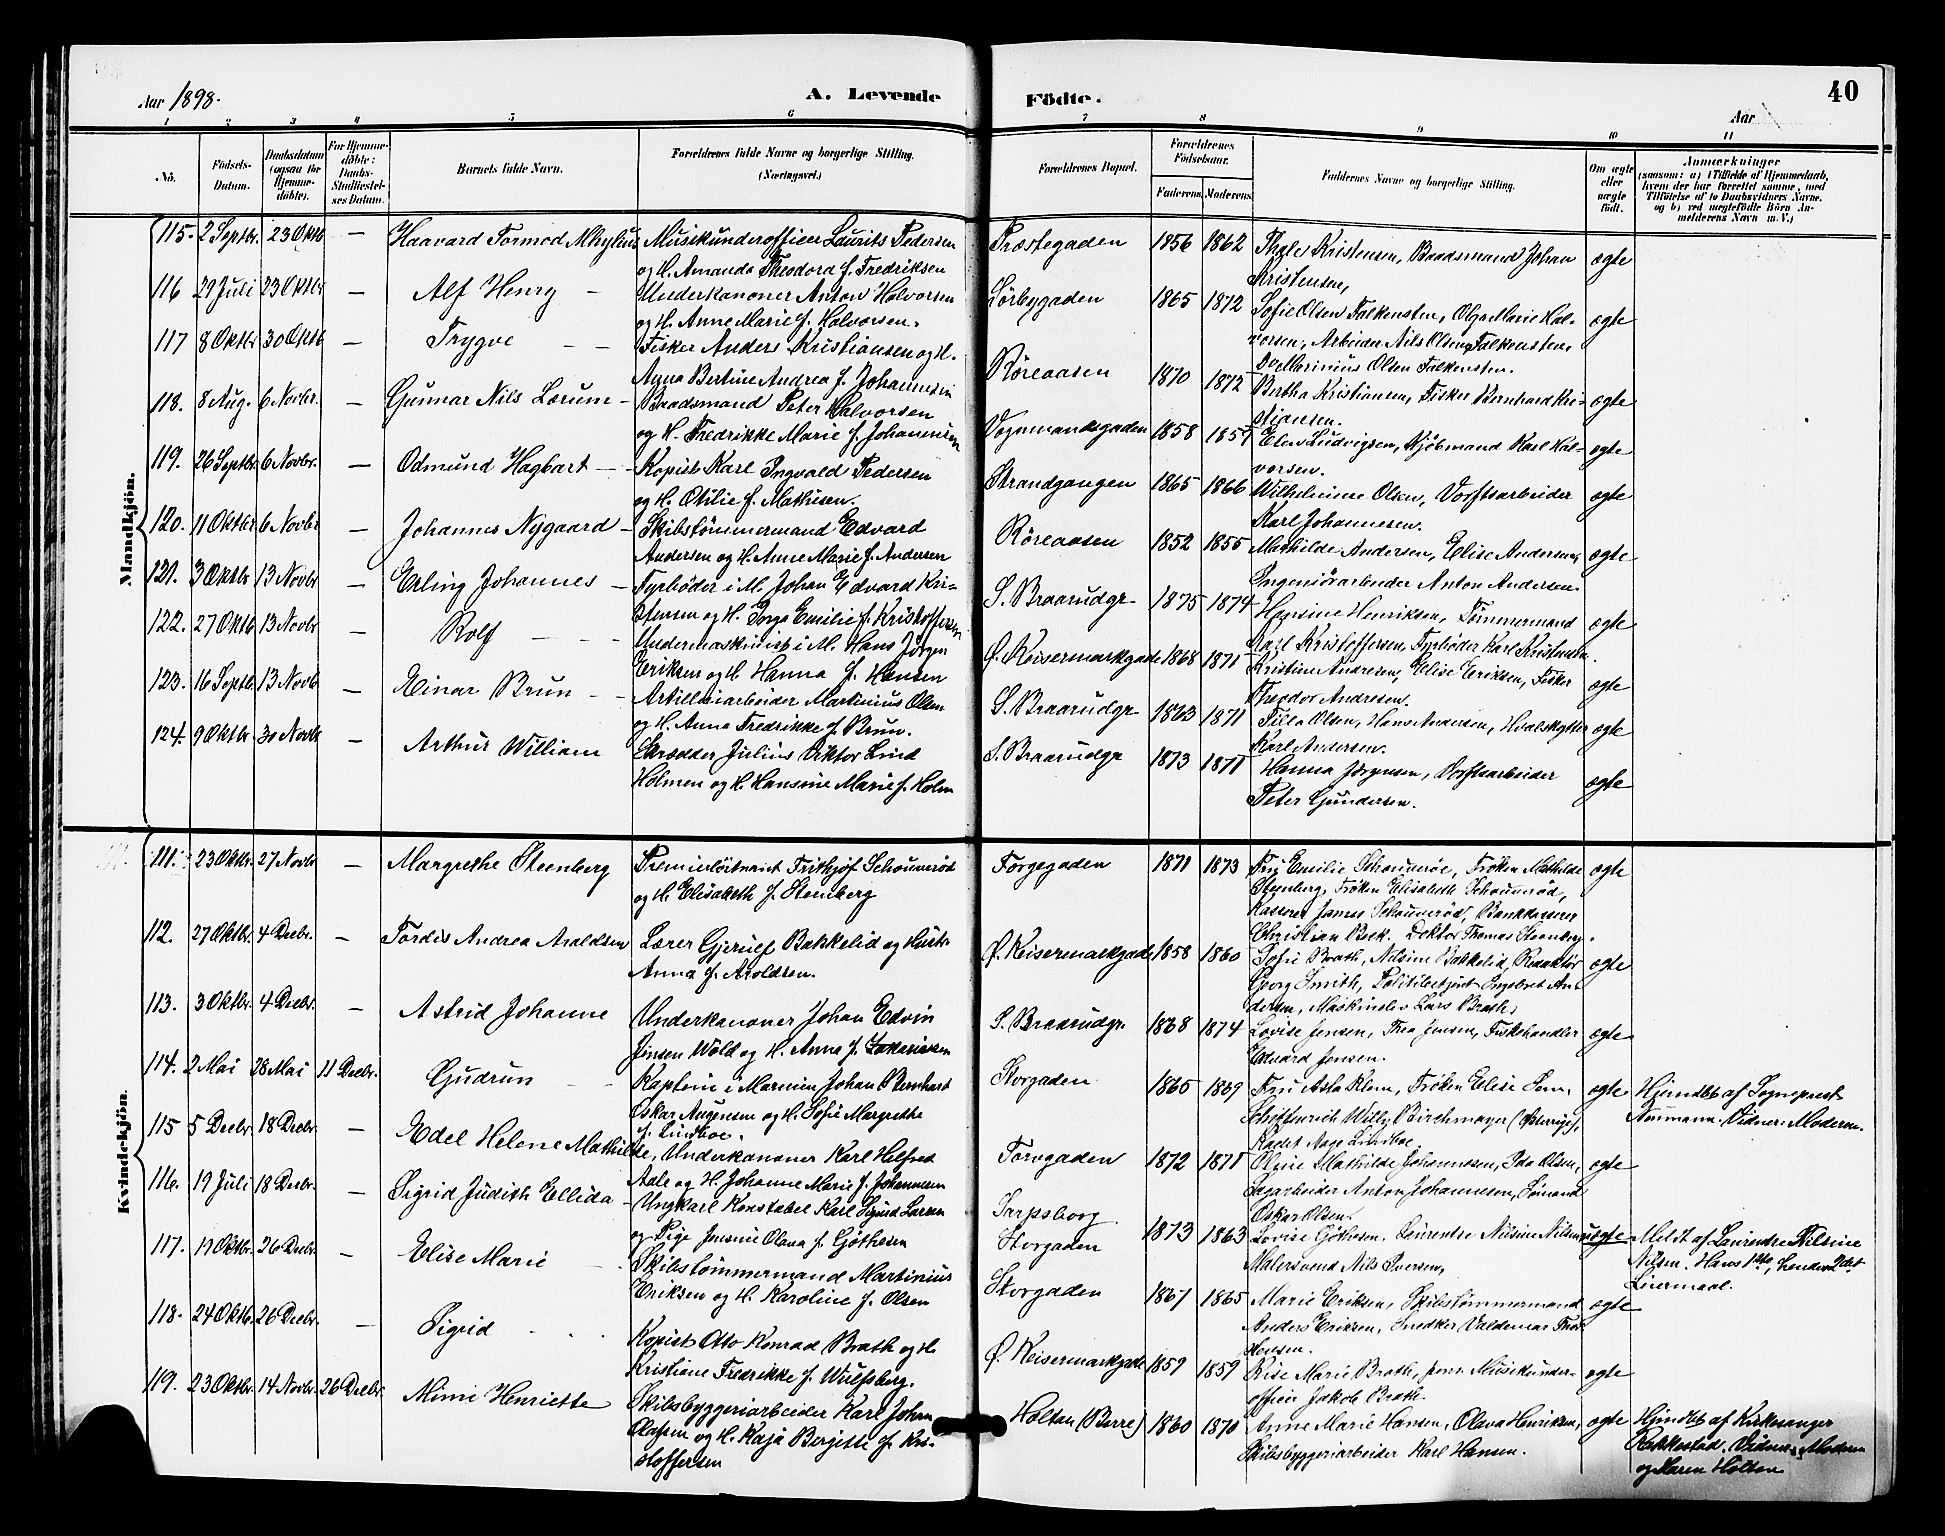 Aar 1898.
A. Levende
Födte.
40
Aar
1 2 3 4 5 6 7 8 9 10 11
No.
Födsels-Datum.
Daabsdatum (ogsaa for Hjemme-döbte).
For Hjemme-döbte: Daabs-Stadfæstel-ses Datum.
Barnets fulde Navn.
Forældrenes fulde Navne og borgerlige Stilling.
(Næringsvei.)
Forældrenes Bopæl.
Forældrenes Födselsaar.
Faderens. Moderens.
Faddernes Navne og borgerlige Stilling.
Om ægte eller uægte födt.
Anmærkninger
(saasom: a) i Tilfælde af Hjemmedaab, hvem der har forrettet samme, med Tilföielse af to Daabsvidners Navne, og b) ved uegtefödte Börn An-melderens Navn m. V.)
Mandkjön.
115. 2 Septbr. 23 Oktb — Haavard Tormod Mhylius Musikunderofficer Laurits Pedersen Præstegaden 1856 1862 Thales Kristensen, Baadsmand Johan ægte
og H. Amanda Theodora f. Fredriksen Kristensen,
116 29 Juli 23 Oktbr — Alf Henry — Underkanoner Anton Halvorsen Lörbygaden 1865 1872 Sofie Olsen Falkensten, Olga Marie Hal- ægte
og H. Anne Marie f. Halvorsen. vorsen, Arbeider Nils Olsen Falkensten,
117 8 Oktbr 30 Oktb — Trygve — — Fisker Anders Kristiansen og H. Röreaasen 1870 1872 Do Marinius Olsen Falkensten.
Anna Bertine Andrea f. Johannesen Bertha Kristiansen, Fisker Bernhard Kri- ægte
118. 8 Aug. 6 Novbr. — Gunnar Nils Lærum — Baadsmand Peter Halvorsen Vognmandsgaden 1858 1857 stiansen.
og H. Fredrikke Marie f. Johannesen Elen Ludvigsen, Kjöbmand Karl Hal- ægte
119. 26 Septbr 6 Novbr. — Odmund Hagbart — Kopist Karl Ingvald Pedersen Strandgangen 1865 1866 vorsen.
og H. Otilie f. Mathisen. Wilhelmine Olsen, Værftsarbeider ægte
120. 11 Oktbr 6 Novbr — Johannes Nygaard — Skibstömmermand Edvard Röreaasen 1852 1855 Karl Johannesen.
Andersen og H. Anne Marie f. Andersen Mathilde Andersen, Elise Andersen, ægte
121. 3 Oktbr 13 Novbr — Erling Johannes — Fyrböder i M. Johan Edvard Kri- S. Braarudgr. 1875 1874 Ingeniörarbeider Anton Andersen.
stensen og H. Inga Emilie f. Kristoffersen Hansine Henriksen, Tömmermand ægte
122. 27 Oktb 13 Novbr — Rolf — — Undermaskinist i M. Hans Jörgen Ø. Keisermarkgade 1868 1871 Karl Kristoffersen, Fyrböder Karl Kristensen.
Eriksen og H. Hanna f. Hansen Kristine Andresen, Elise Eriksen, Fisker ægte
123. 16 Septb. 13 Novb. — Einar Brun — Artilleriarbeider Martinius Olsen S. Braarudgr 1863 1871 Theodor Andresen.
og H. Anna Fredrikke f. Brun. Tilla Olsen, Hans Andersen, Hvalskytter ægte
124. 9 Oktbr. 30 Novbr — Arthur William Skrædder Julius Viktor Lind S. Braarudgr 1873 1871 Karl Andersen.
Holmen og H. Hansine Marie f. Holm Hanna Jörgensen, Værftsarbeider ægte
Peter Gundersen.
Kvindekjön.
111. 23 Oktbr. 27 Novbr — Margrethe Steenberg Premierlöitnant Frithjof Schounröd Torgegaden 1871 1873 Fru Emilie Schounröe, Fröken Mathilde ægte
og H. Elisabeth f. Stenberg Stenberg, Fröken Elisabeth Schounröd,
Kasserer James Schounröd, Bankkasserer
Christian Bech. Doktor Thomas Stenberg.
112. 27 Oktbr. 4 Decbr. — Tordis Andrea Aroldsen Lærer Gjerulf Bakkelid og Hustr. Ø. Keisermarkgade 1858 1860 Sofie Brath, Nilsine Bakkelid, Redaktör ægte
Anna f. Aroldsen. Georg Smith, Politibetjent Ingebret An-
dersen, Maskinelev Lars Brath,
113. 3 Oktbr. 4 Decbr. — Astrid Johanne Underkanoner Johan Edvin S. Braarudgr. 1868 1874 Lovise Jensen, Thea Jensen, Fiskehandler ægte
Jensen Wold og H. Anna f. Zakariassen Edvard Jensen.
114. 2 Mai 28 Mai 11 Decbr. Gudrun — — Kaptein i Marinen Johan Bernhart Storgaden 1865 1869 Fru Asta Klem, Fröken Elise Lem, ægte Hjemdbt af Sogneprest
Oskar Augensen og H. Sofie Margrethe Willy Birchmayer (Österrige), Neumann. Vidner: Moderen.
f. Lindboe. Kadet Aage Lindboe.
115 5 Decbr. 18 Decbr. — Edel Helene Mathilde, Underkanoner Karl Helfred Torvgaden 1872 1871 Oline Mathilde Johannesen, Ida Olsen, ægte
Aale og H. Johanne Marie f. Johannesen Sagarbeider Anton Johannesen, Sömand
116. 19 Juli 18 Decbr. — Sigrid Judith Ellida — Ungkarl Konstabel Karl Sigurd Larsen Sarpsborg Oskar Olsen.
og Pige Jensine Olava f. Gjöthesen Storgaden 1873 1863 Lovise Gjöthesen, Laurentse Nilsine Nilsen, uægte Meldt af Laurentse Nilsine
Malersvend Nils Iversen, Nilsen. Hans 1ste, hendes 2det
Leiermaal.
117. 17 Oktbr. 26 Decbr. — Elise Marie Skibstömmermand Martinius Storgaden 1867 1865 Marie Eriksen, Skibstömmermand ægte
Eriksen og H. Karoline f. Olsen Anders Eriksen, Snedker Valdemar Thor-
stensen.
118. 24 Oktb. 26 Decbr. — Sigrid Kopist Otto Konrad Brath og H. Ø. Keisermarkgade 1859 1859 Rise Marie Brath, pens. Musikunder- ægte
Kristiane Fredrikke f. Wulfsberg. officer Jakob Brath.
119. 23 Oktbr. 14 Novbr. 26 Decbr. Mimi Henriette Skibsbyggeriarbeider Karl Johan Holtan (Borre) 1860 1870 Anne Marie Hansen, Olava Henriksen, ægte Hjmdbt af Kirkesanger
Olafsen og H. Kaja Bergitte f. Kri- Skibsbyggeriarbeider Karl Hansen. Rakkestad. Vidner: Moderen
stoffersen og Maren Holtan